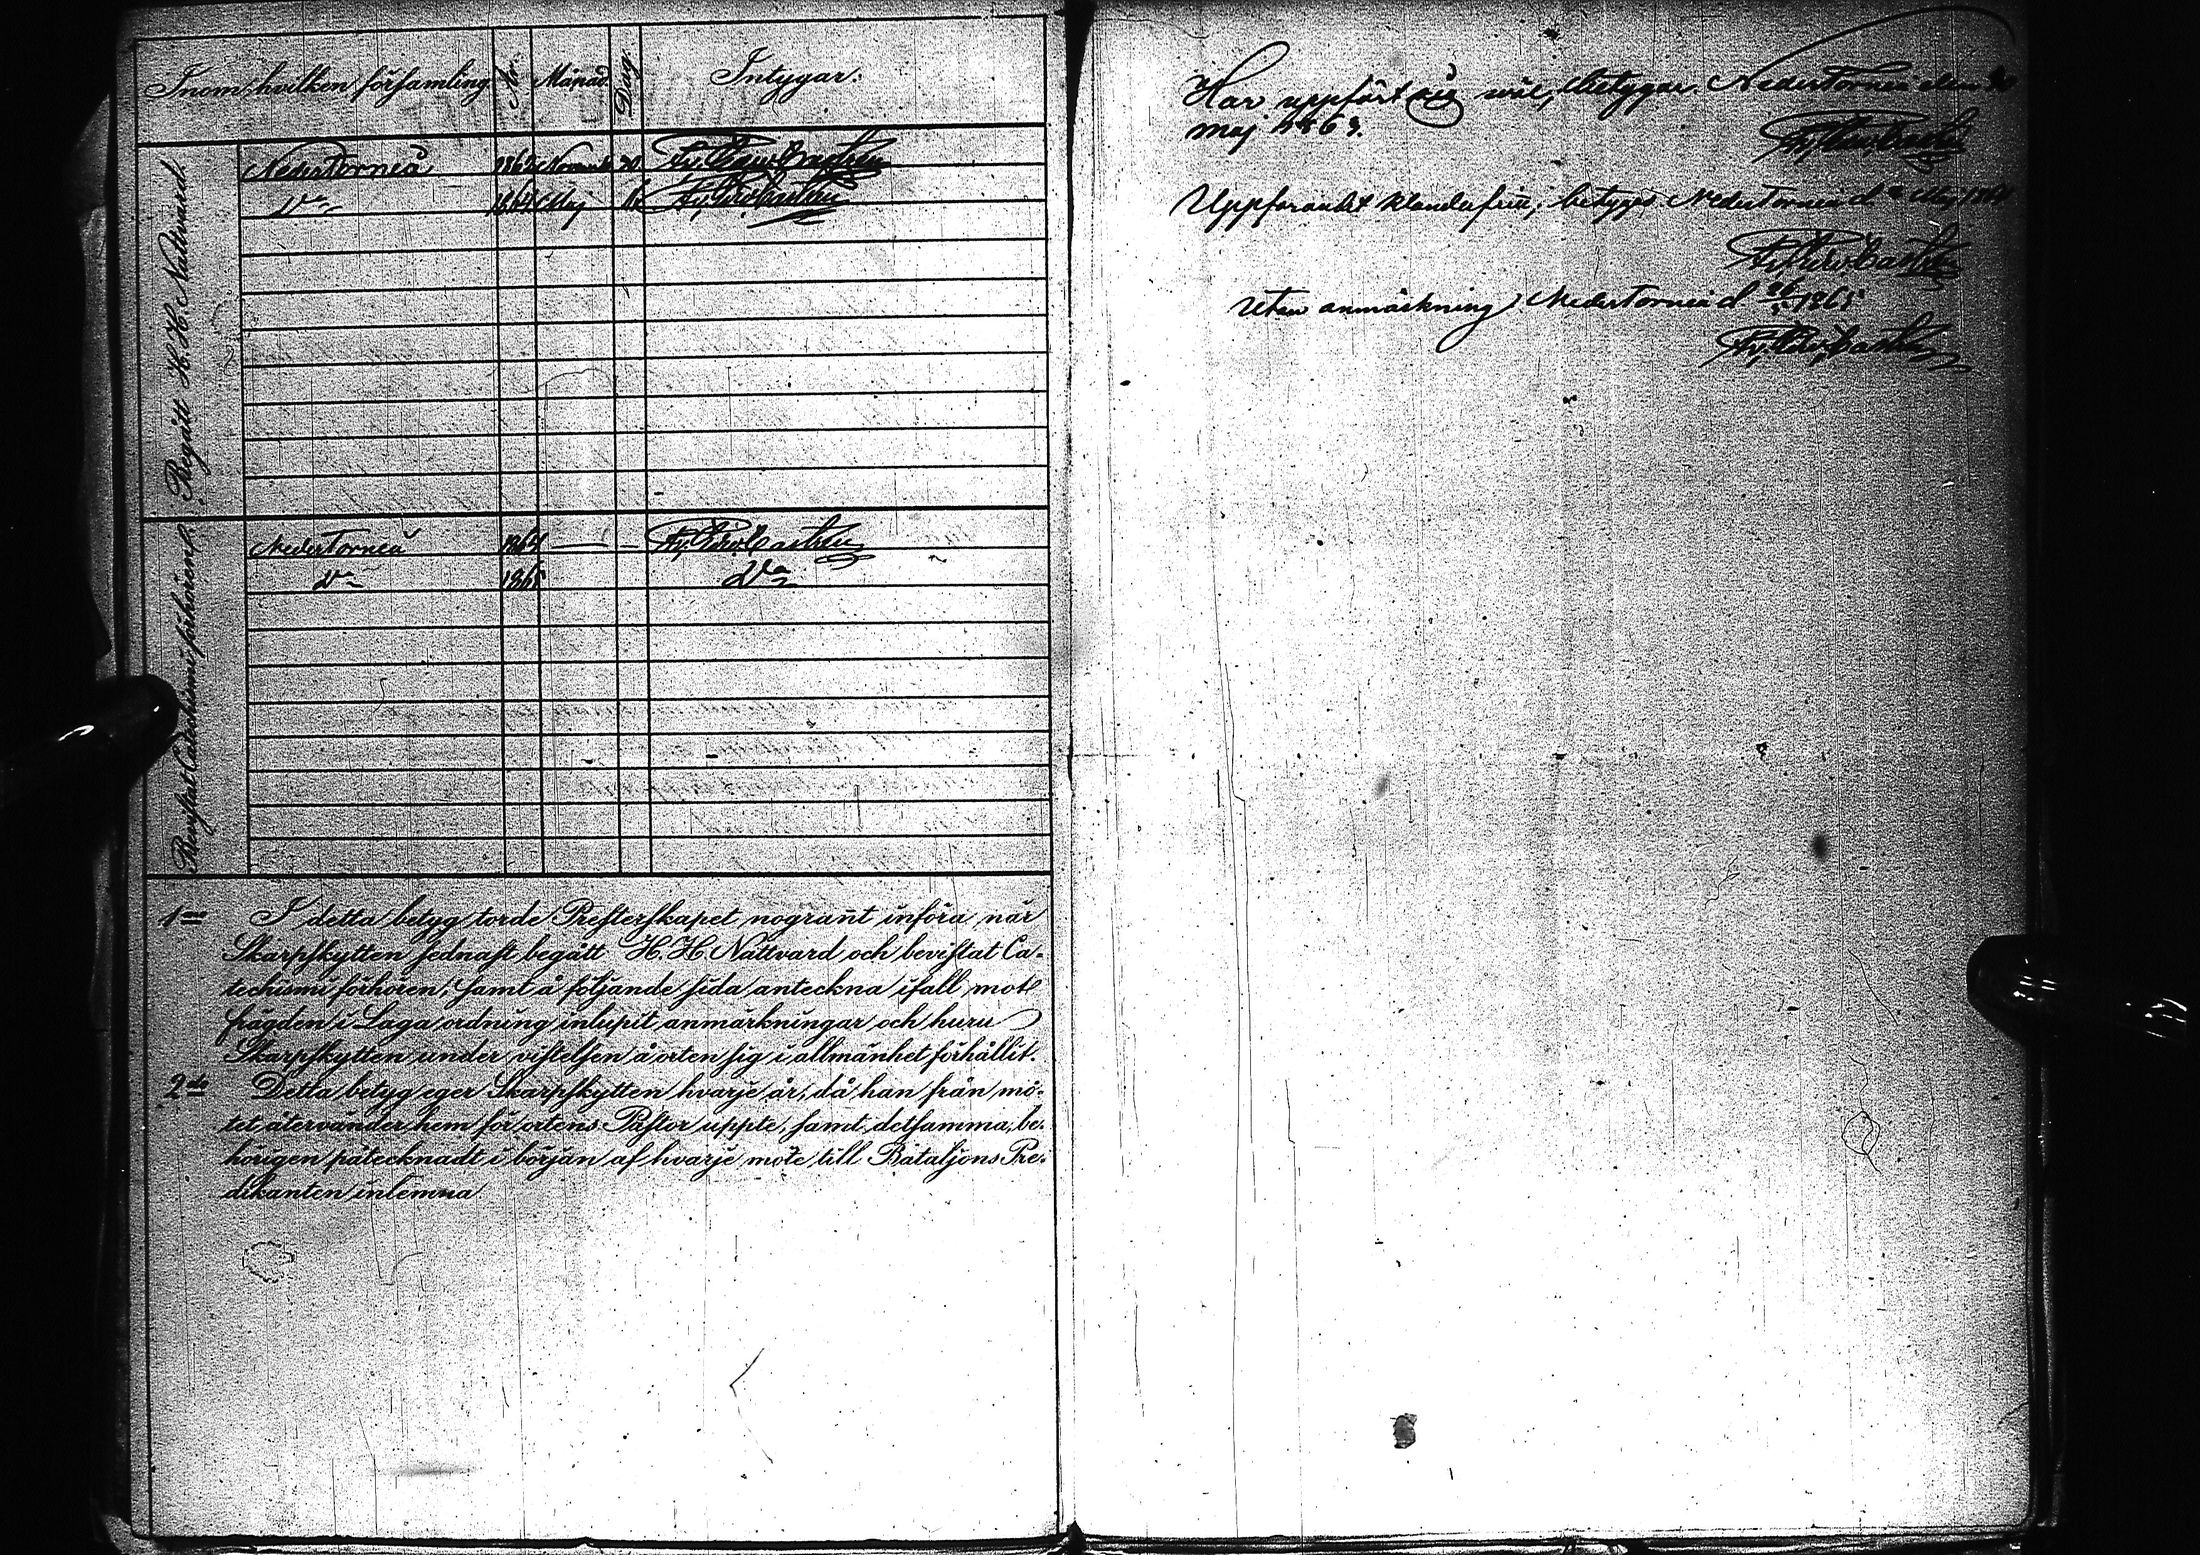 Inom hvilken församling År. Månad. Dag. Intygar:
Begått H. H. Nattvard.
NederTorneå 1862 Novemb 30
D:o 1864 Maj 6
Bevistat Catechismi förhören.
NederTorneå 1864 — —
D:o 1865 D:o
1mo I detta betyg torde Presterskapet nogrant införa när
Skarpskytten sednast begått H. H. Nattvard och bevistat Ca-
techismi förhören, samt å följande sida anteckna ifall mot
frägden i Laga ordning inlupit anmärkningar och huru
Skarpskytten under vistelsen å orten sig i allmänhet förhållit.
2do Detta betyg eger Skarpskytten hvarje år, då han från mö-
tet återvänder hem för ortens Pastor uppte, samt detsamma, be-
hörigen påtecknadt i början af hvarje möte till Bataljons Pre-
dikanten inlemna
Har uppfört sig wäl, betygar. NederTorneå den
maj 1863.
Uppförandet klanderfritt, betygas NederTorneå d Maj 1864
Utan anmärkning. NederTorneå d 1865